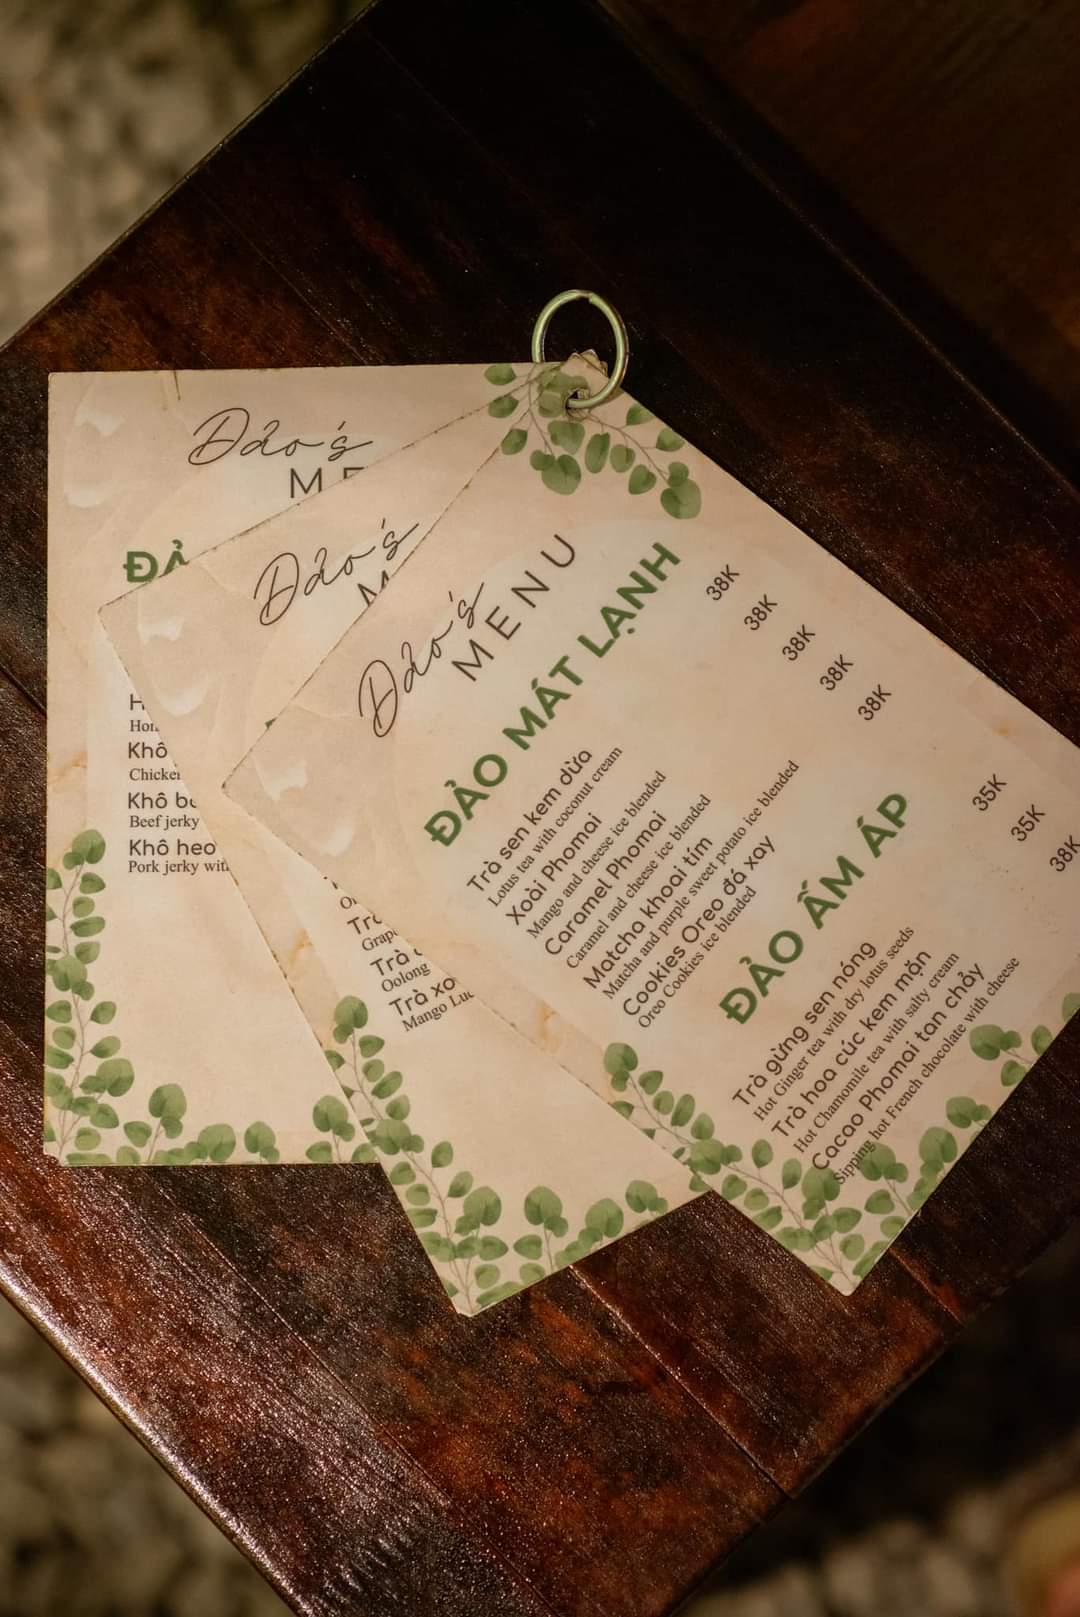 Đảo's
ĐẢ
Khô
Khô
Beef jerky
Khô heo
Pork jerky
Đảo's
Trà
Oolong
Trà
Mango
Đảo's
MENU
ĐẢO MÁT LẠNH
Trà sen kem dừa 38K
Lotus tea with coconut cream
Xoài Phomai 38K
Mango and cheese ice blended
Caramel Phomai 38K
Caramel and cheese ice blended
Matcha khoai tím 38K
Matcha and purple sweet potato ice blended
Cookies Oreo đá xay 38K
Oreo Cookies ice blended
ĐẢO ẤM ÁP
Trà gừng sen nóng 35K
Hot Ginger tea with dry lotus seeds
Trà hoa cúc kem mặn 35K
Hot Chamomile tea with salty cream
Cacao Phomai tan chảy 38K
Sipping hot French chocolate with cheese